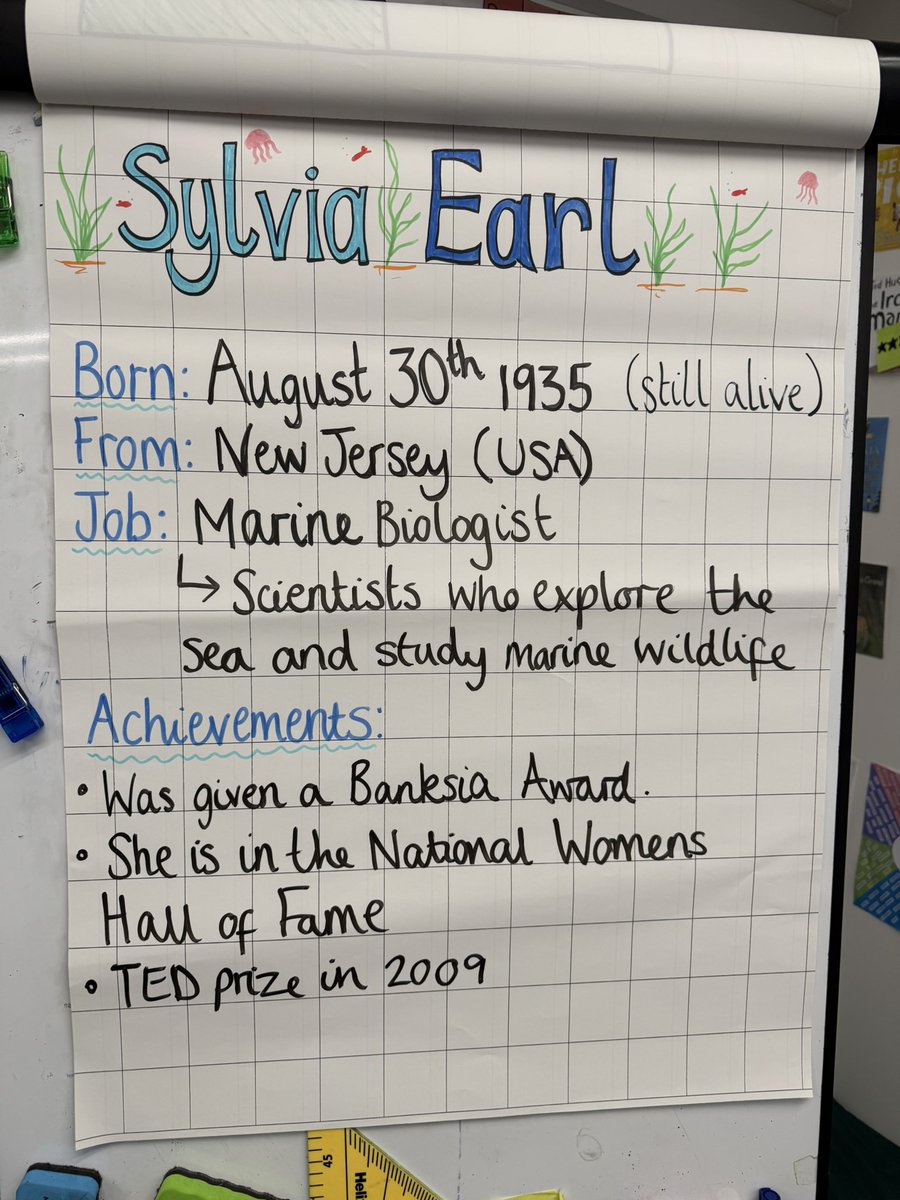 Sylvia Earl
Born: August 30th 1935 (still alive)
From: New Jersey (USA)
Job: Marine Biologist
↳ Scientists who explore the
sea and study marine wildlife
Achievements:
• Was given a Banksia Award.
• She is in the National Womens
Hall of Fame
• TED prize in 2009
45
Heli